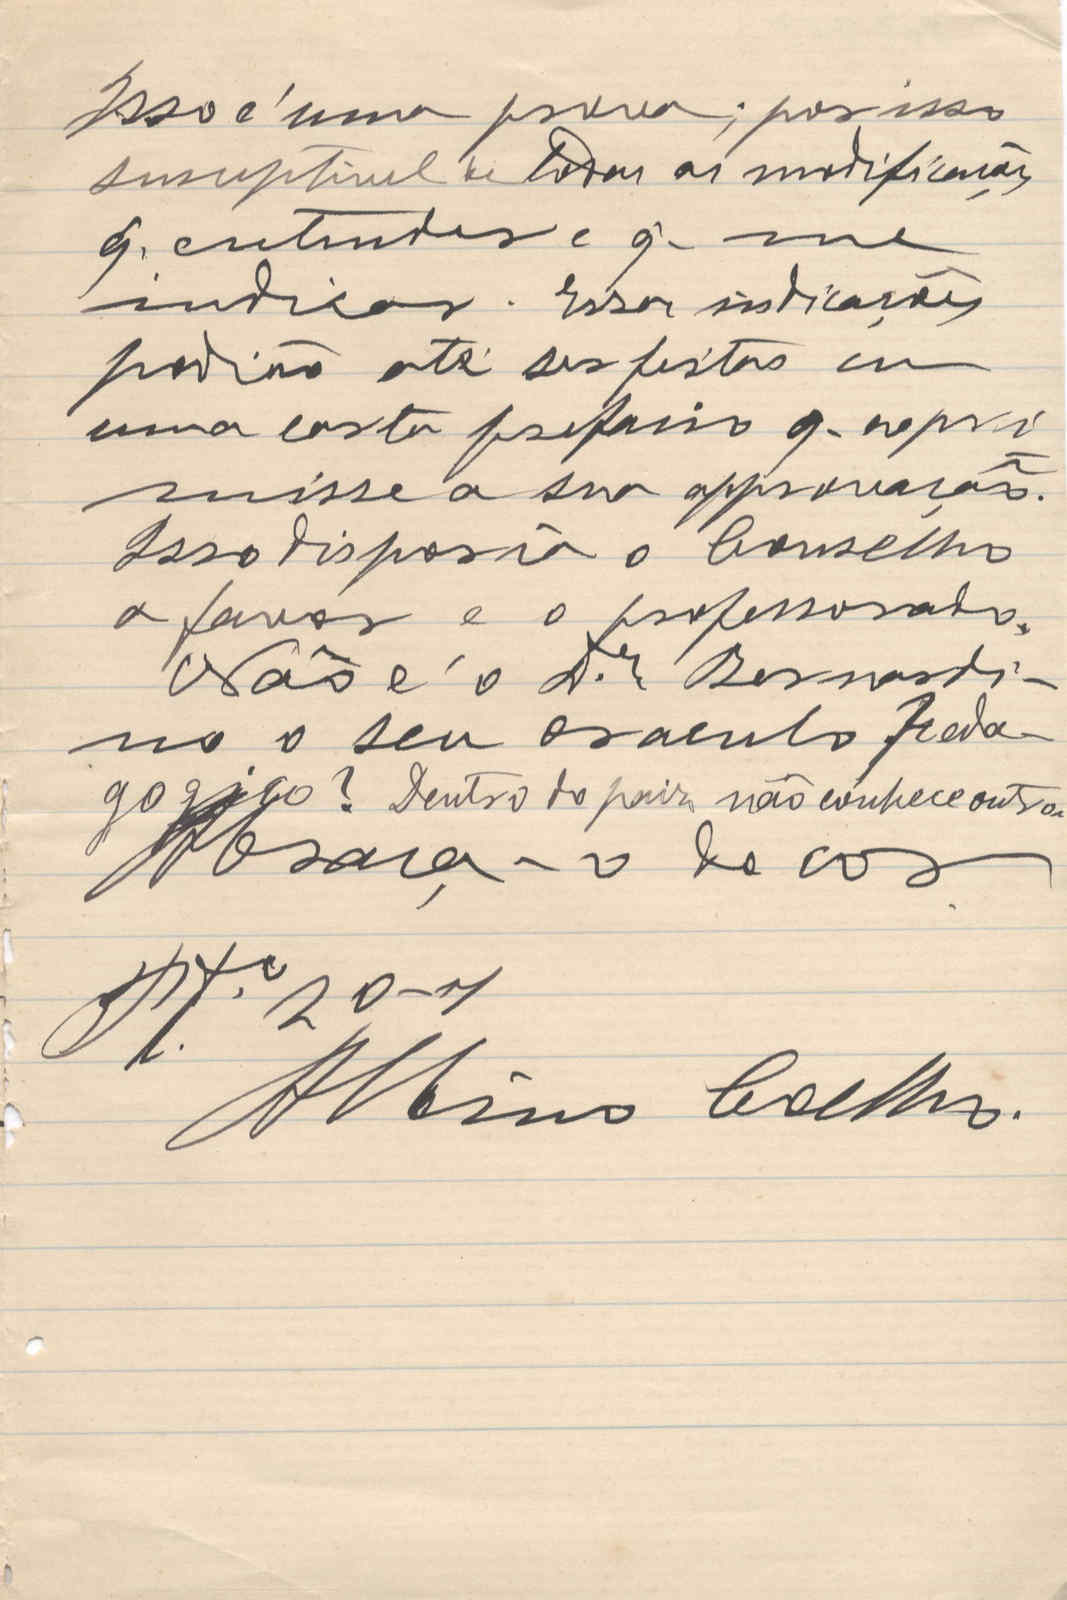 Isso é uma prova; por isso
susceptivel de todas as modificações
q. entender e q. me
indicar. Essas indicações
podião até ser feitas em
uma carta prefacio q. expri
misse a sua approvação.
Isso disporia o Conselho
a favor e o professorado.
Não é o D.r Bernardi-
no o seu oraculo Peda-
gogigo? Dentro do paiz não conhece outro
Abraça-o de cor
20-1
Albino Coelho.